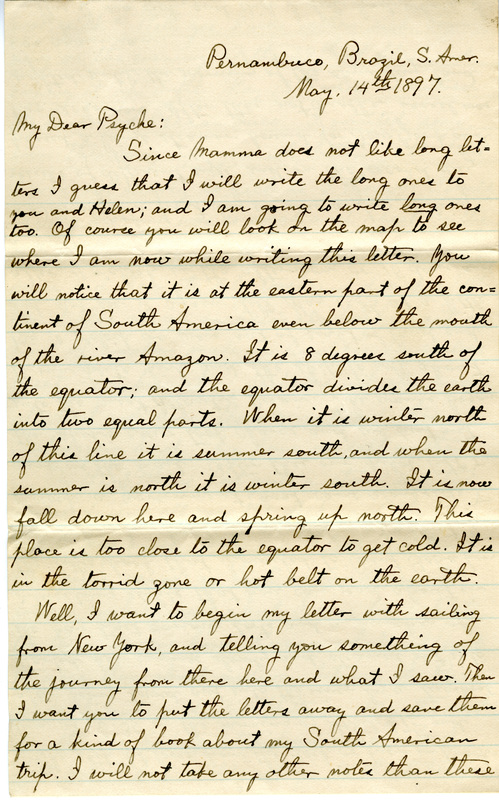 Pernambuco, Brazil, S. Amer.
May, 14th 1897.
My Dear Psyche:
Since Mamma does not like long let=
ters I guess that I will write the long ones to
you and Helen; and I am going to write long ones
too. Of course you will look on the map to see
where I am now while writing this letter. You
will notice that it is at the eastern part of the con=
tinent of South America even below the mouth
of the river Amazon. It is 8 degrees south of
the equator; and the equator divides the earth
into two equal parts. When it is winter north
of this line it is summer south, and when the
summer is north it is winter south. It is now
fall down here and spring up north. This
place is too close to the equator to get cold. It is
in the torrid zone or hot belt on the earth.
Well, I want to begin my letter with sailing
from New York, and telling you something of
the journey from there here and what I saw. Then
I want you to put the letters away and save them
for a kind of book about my South American
trip. I will not take any other notes than these